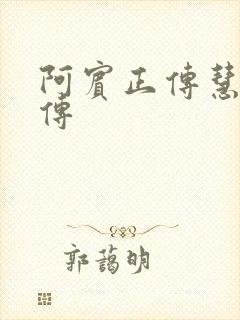 阿賓正傳慧
傳
郭藹明